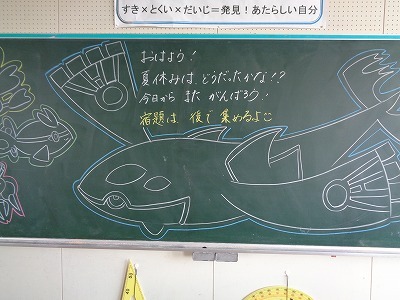 すき×とくい×だいじ＝発見！あたらしい自分
おはよう！
夏休みは どうだったかな！？
今日から また がんばろう！
宿題は 後で 集めるよこ